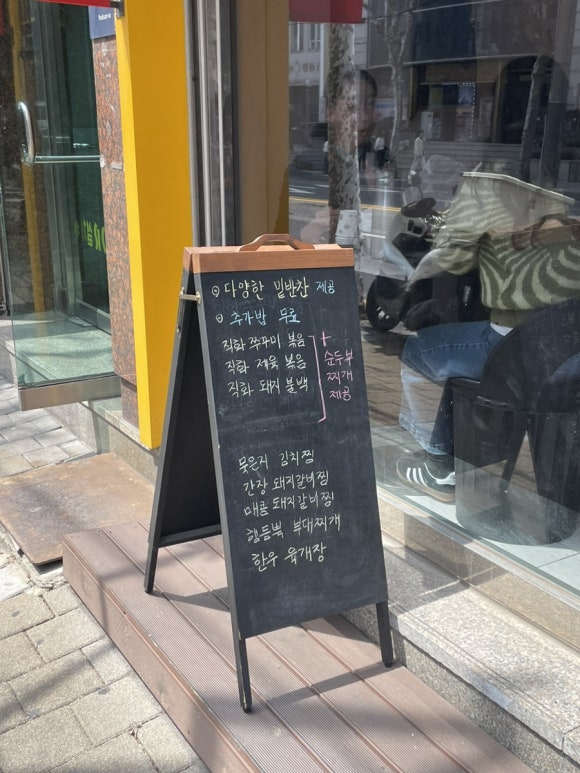 다양한 밑반찬 제공
추가밥 무료
직화 쭈꾸미 볶음
직화 제육 볶음
직화 돼지 불백
+
순두부
찌개
제공
묵은지 김치찜
간장 돼지갈비찜
매콤 돼지갈비찜
햄듬뿍 부대찌개
한우 육개장